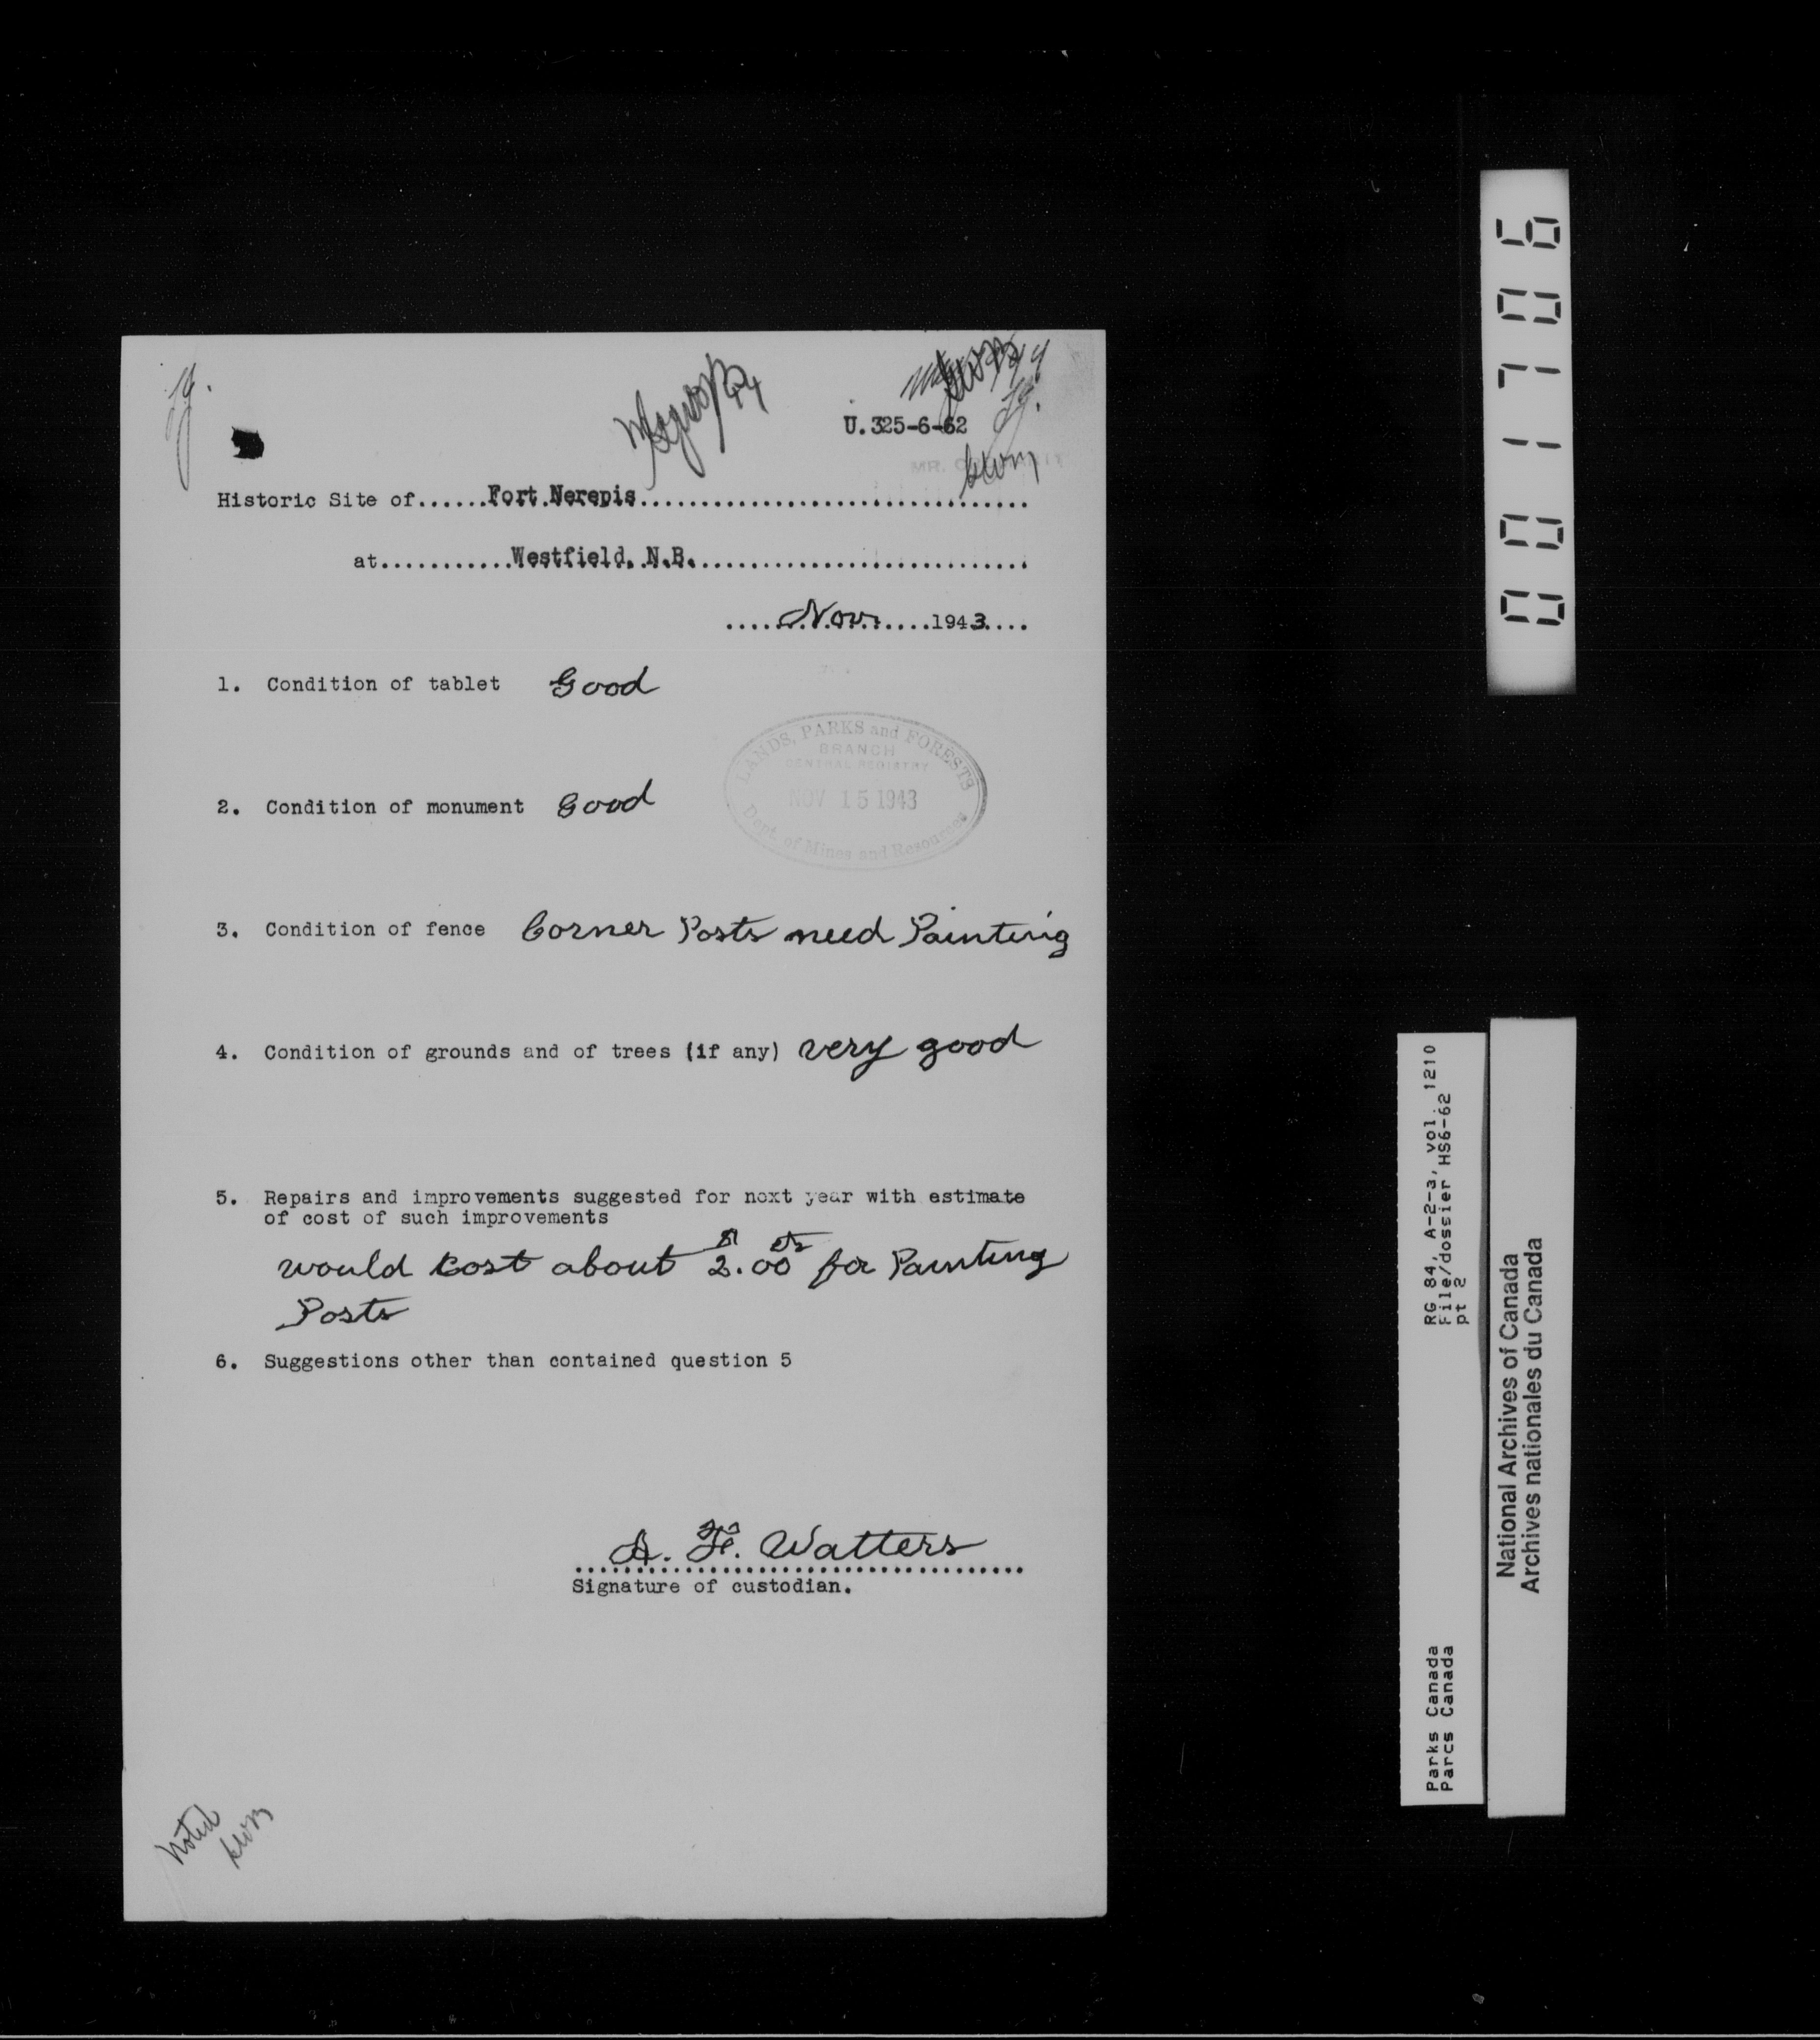 U.325-6-62
Historic Site of......Fort Nerepis..................................
at...........Westfield, N.B...............................
.....Nov.........1943....
1. Condition of tablet Good
LANDS, PARKS and FORESTS
BRANCH
CENTRAL REGISTRY
NOV 15 1943
Dept. of Mines and Resources
2. Condition of monument Good
3. Condition of fence Corner Posts need Painting
4. Condition of grounds and of trees (if any) very good
5. Repairs and improvements suggested for next year with estimate
of cost of such improvements
would cost about $2.00 cts for Painting
Posts
6. Suggestions other than contained question 5
A. F. Watters
Signature of custodian.
Noted
001706
RG 84, A-2-3, vol. 1210
File/dossier HS6-62
pt 2
Parks Canada
Parcs Canada
National Archives of Canada
Archives nationales du Canada